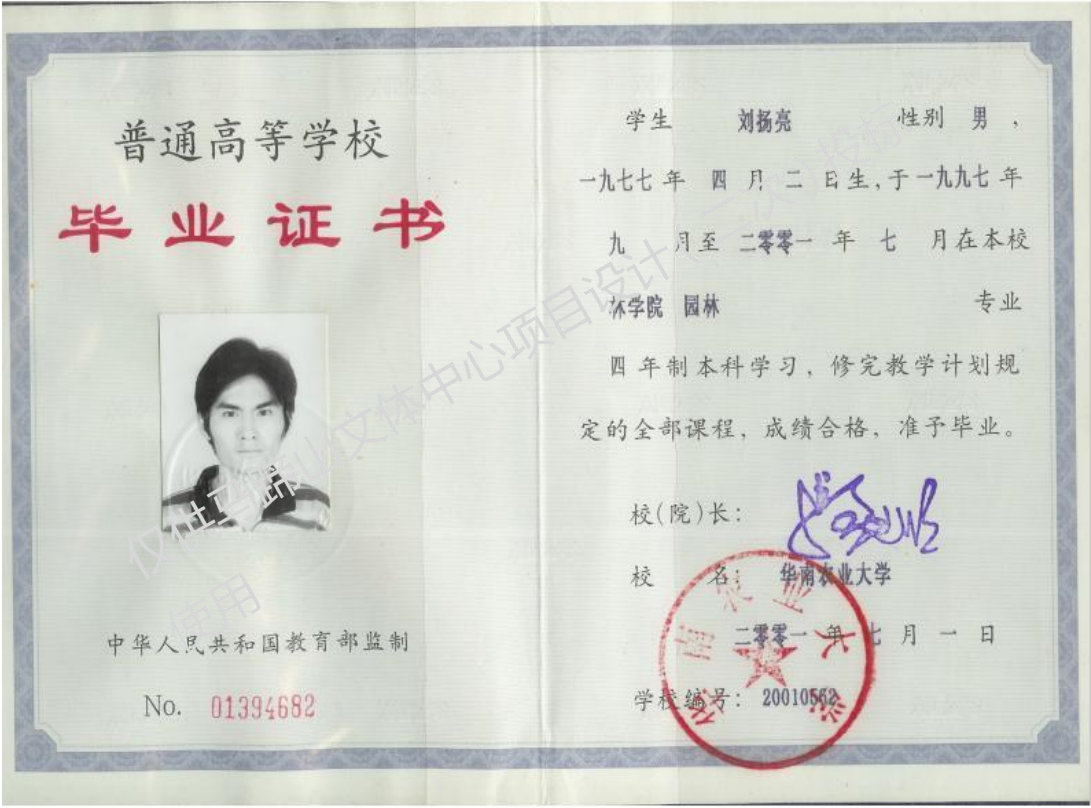 普通高等学校
毕业证书
中华人民共和国教育部监制
No. 01394682
学生 刘扬亮 性别 男，
一九七七年 四 月 二 日生，于一九九七年
九 月至 二零零一 年 七 月在本校
林学院 园林 专业
四 年制本科学习，修完教学计划规
定的全部课程，成绩合格，准予毕业。
校（院）长：
校 名： 华南农业大学
二零零一 年 七 月 一 日
学校编号： 20010562
华南农业大学
使用